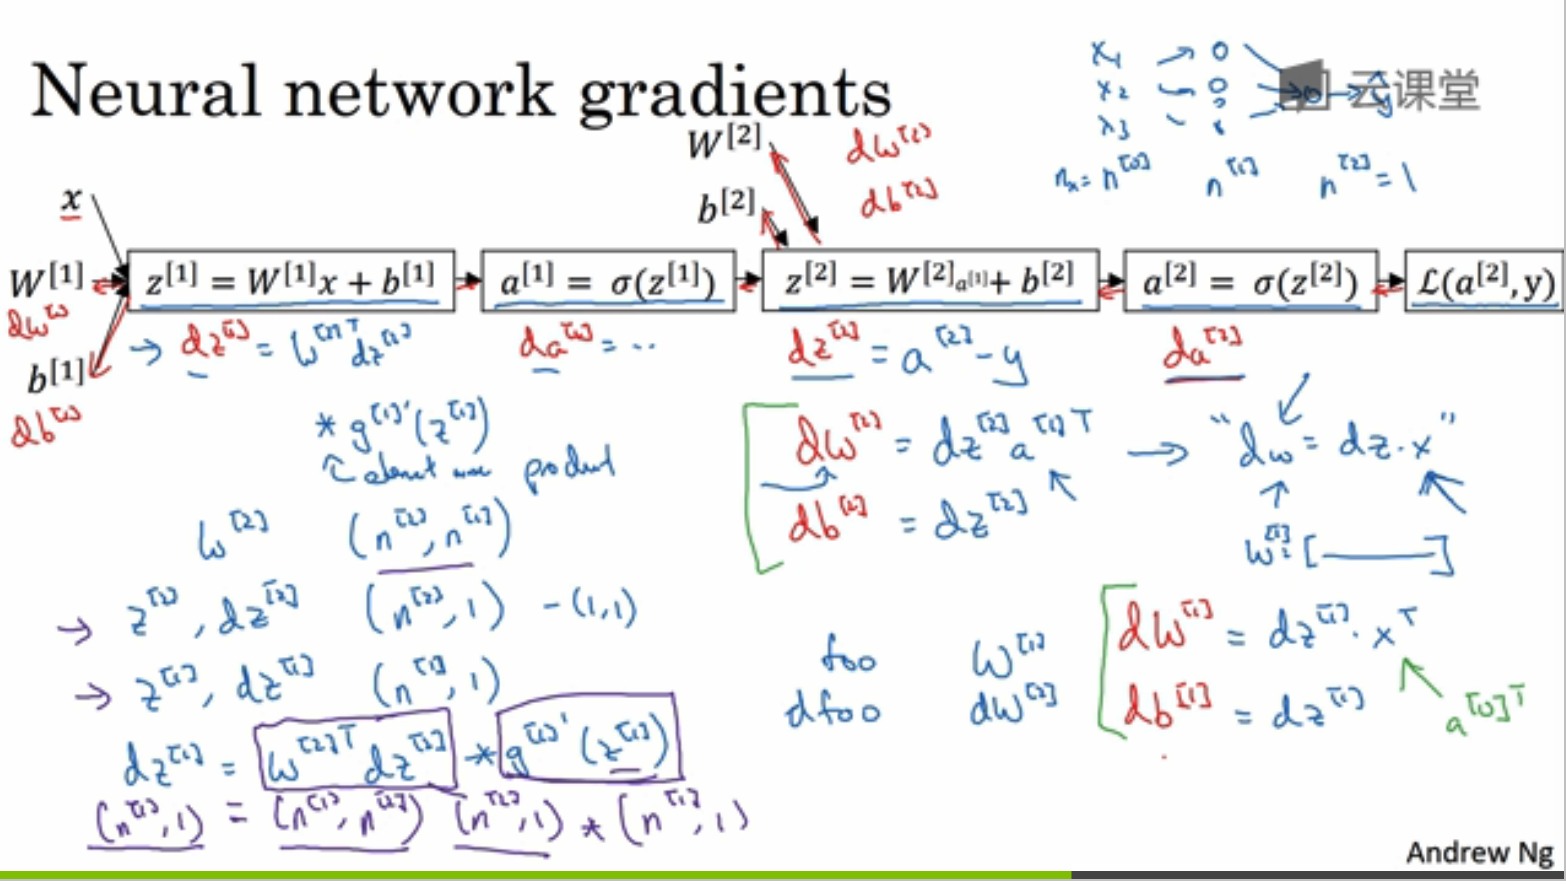 Neural network gradients
x₁
x₂
x₃
云课堂
ŷ
nₓ = n^[0] n^[1] n^[2] = 1
W^[2] dW^[2]
b^[2] db^[2]
x
W^[1] z^[1] = W^[1]x + b^[1] a^[1] = σ(z^[1]) z^[2] = W^[2]a^[1] + b^[2] a^[2] = σ(z^[2]) ℒ(a^[2], y)
dW^[1]
→ dz^[1] = W^[2]T dz^[2] da^[1] = .. dz^[2] = a^[2] - y da^[2]
b^[1]
db^[1]
* g^[1]'(z^[1])
↑ element wise product
dW^[2] = dz^[2] a^[1]T → "dw = dz · x"
db^[2] = dz^[2]
W^[2] (n^[2], n^[1])
z^[2], dz^[2] (n^[2], 1) - (1,1)
z^[1], dz^[1] (n^[1], 1)
dz^[1] = W^[2]T dz^[2] * g^[1]'(z^[1])
(n^[1], 1) = (n^[1], n^[2]) (n^[2], 1) * (n^[1], 1)
foo W^[1]
dfoo dW^[1]
dW^[1] = dz^[1] · x^T
db^[1] = dz^[1]
a^[0]T
Andrew Ng